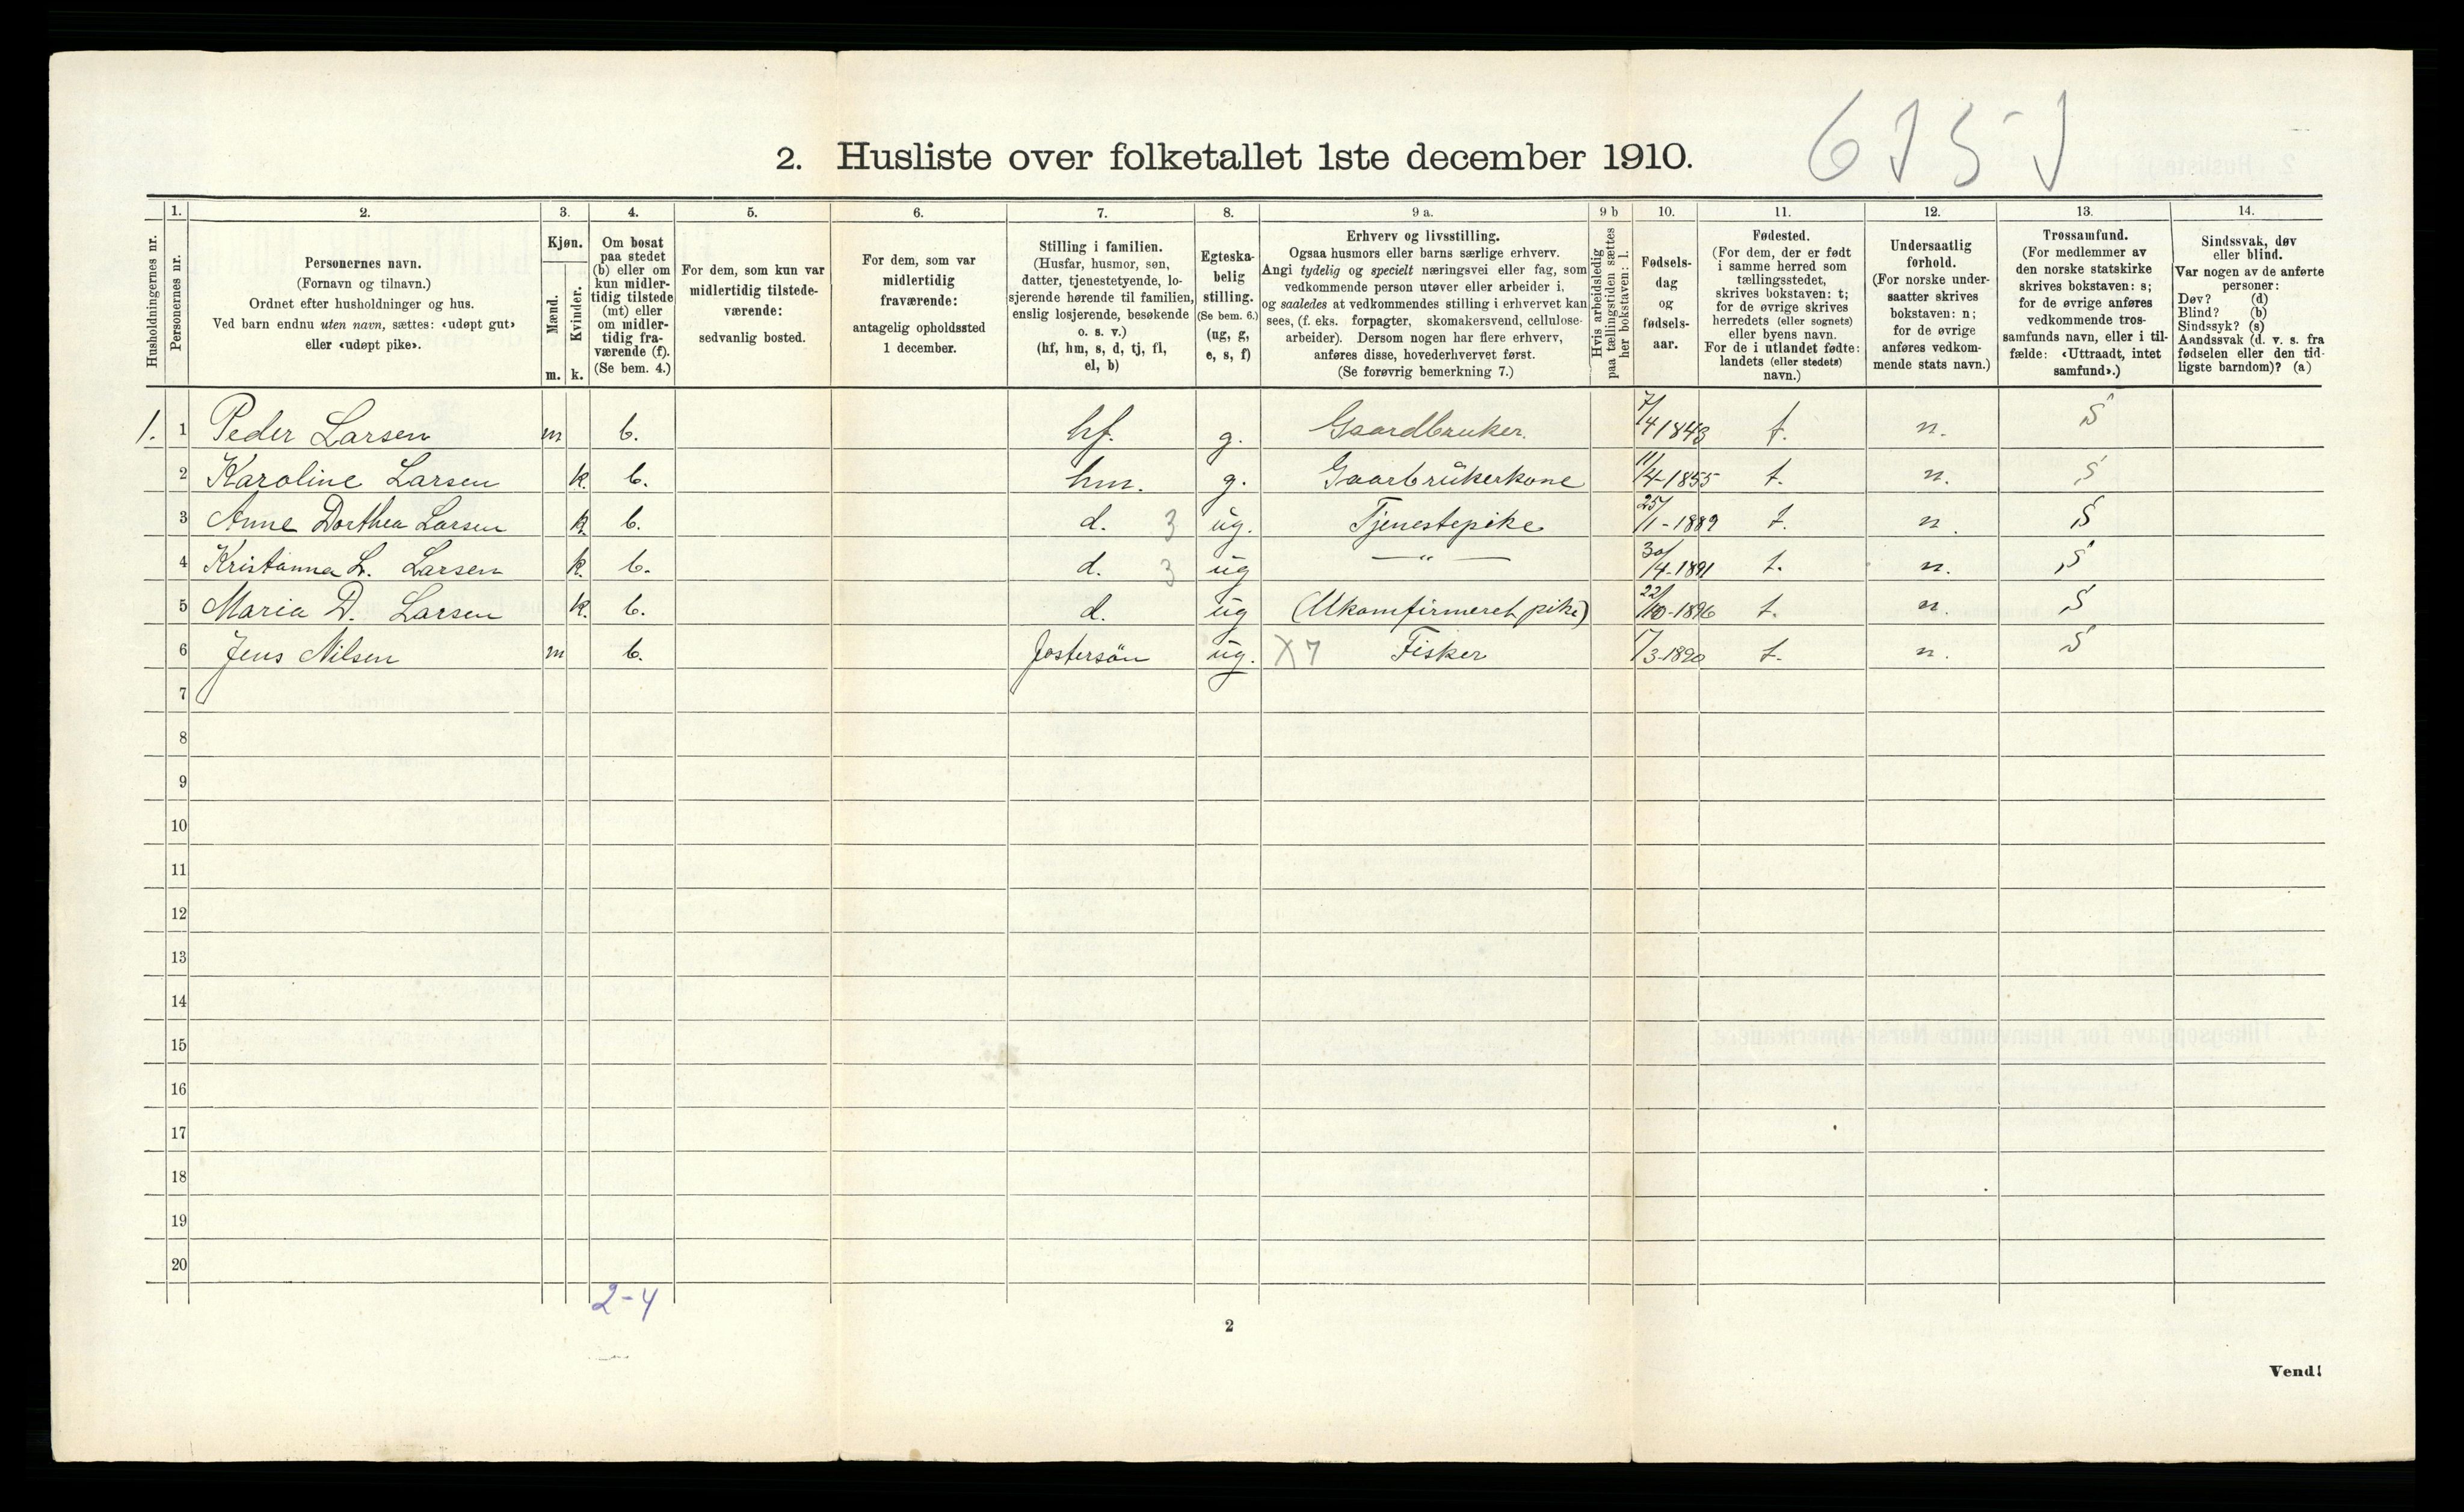 6751
2. Husliste over folketallet 1ste december 1910.
Husholdningernes nr.
1.
Personernes nr.
2.
Personernes navn.
(Fornavn og tilnavn.)
Ordnet efter husholdninger og hus.
Ved barn endnu uten navn, sættes: «udøpt gut»
eller «udøpt pike».
3.
Kjøn.
Mænd.
Kvinder.
m. k.
4.
Om bosat
paa stedet
(b) eller om
kun midler-
tidig tilstede
(mt) eller
om midler-
tidig fra-
værende (f).
(Se bem. 4.)
5.
For dem, som kun var
midlertidig tilstede-
værende:
sedvanlig bosted.
6.
For dem, som var
midlertidig
fraværende:
antagelig opholdssted
1 december.
7.
Stilling i familien.
(Husfar, husmor, søn,
datter, tjenestetyende, lo-
sjerende hørende til familien,
enslig losjerende, besøkende
o. s. v.)
(hf, hm, s, d, tj, fl,
el, b)
8.
Egteska-
belig
stilling.
(Se bem. 6.)
(ug, g,
e, s, f)
9 a.
Erhverv og livsstilling.
Ogsaa husmors eller barns særlige erhverv.
Angi tydelig og specielt næringsvei eller fag, som
vedkommende person utøver eller arbeider i,
og saaledes at vedkommendes stilling i erhvervet kan
sees, (f. eks. forpagter, skomakersvend, cellulose-
arbeider). Dersom nogen har flere erhverv,
anføres disse, hovederhvervet først.
(Se forøvrig bemerkning 7.)
9 b
Hvis arbeidsledig
paa tællingstiden sættes
her bokstaven: l.
10.
Fødsels-
dag
og
fødsels-
aar.
11.
Fødested.
(For dem, der er født
i samme herred som
tællingsstedet,
skrives bokstaven: t;
for de øvrige skrives
herredets (eller sognets)
eller byens navn.
For de i utlandet fødte:
landets (eller stedets)
navn.)
12.
Undersaatlig
forhold.
(For norske under-
saatter skrives
bokstaven: n;
for de øvrige
anføres vedkom-
mende stats navn.)
13.
Trossamfund.
(For medlemmer av
den norske statskirke
skrives bokstaven: s;
for de øvrige anføres
vedkommende tros-
samfunds navn, eller i til-
fælde: «Uttraadt, intet
samfund».)
14.
Sindssvak, døv
eller blind.
Var nogen av de anførte
personer:
Døv? (d)
Blind? (b)
Sindssyk? (s)
Aandssvak (d. v. s. fra
fødselen eller den tid-
ligste barndom)? (a)
1. 1 Peder Larsen m b. hf. g. Gaardbruker. 7/4 1843 t. n. S
2 Karoline Larsen k. b. hm. g. Gaarbrukerkone 11/4-1855 t. n. S
3 Anne Dorthea Larsen k. b. d. 3 ug. Tjenestepike 25/1-1889 t. n. S
4 Kristanna L. Larsen k. b. d. 3 ug — " — 30/4-1891 t. n. S
5 Maria D. Larsen k. b. d. ug (Ukomfirmeret pike) 22/10-1896 t. n. S
6 Jens Nilsen m b. Fostersön ug. X7 Fisker 17/3-1890 t. n. S
7
8
9
10
11
12
13
14
15
16
17
18
19
20
2-4
2
Vend!